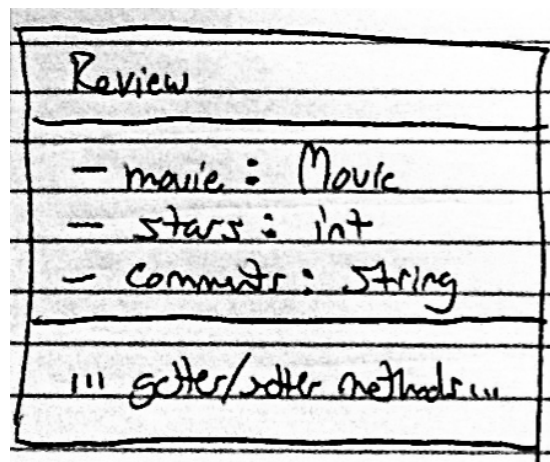 Review
- movie : Movie
- stars : int
- comments : String
... getter/setter methods ...